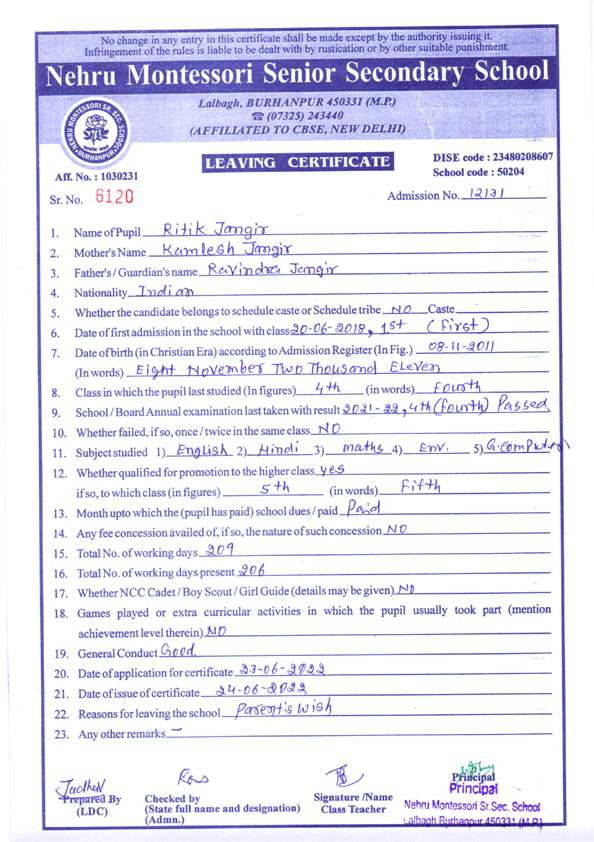 No change in any entry in this certificate shall be made except by the authority issuing it.
Infringement of the rules is liable to be dealt with by rustication or by other suitable punishment.
Nehru Montessori Senior Secondary School
Lalbagh, BURHANPUR 450331 (M.P.)
☎ (07325) 243440
(AFFILIATED TO CBSE, NEW DELHI)
NEHRU MONTESSORI SR. SEC. SCHOOL
BURHANPUR
LEAVING CERTIFICATE
DISE code : 23480208607
School code : 50204
Aff. No. : 1030231
Sr. No. 6120
Admission No. 12131
1. Name of Pupil Ritik Jangir
2. Mother's Name Kamlesh Jangir
3. Father's / Guardian's name Ravindra Jangir
4. Nationality Indian
5. Whether the candidate belongs to schedule caste or Schedule tribe NO Caste
6. Date of first admission in the school with class 20-06-2018, 1st (first)
7. Date of birth (in Christian Era) according to Admission Register (In Fig.) 08-11-2011
(In words) Eight November Two Thousand Eleven
8. Class in which the pupil last studied (In figures) 4th (in words) Fourth
9. School / Board Annual examination last taken with result 2021-22, 4th (fourth) Passed
10. Whether failed, if so, once / twice in the same class NO
11. Subject studied 1) English 2) Hindi 3) maths 4) Env. 5) G.computer
12. Whether qualified for promotion to the higher class yes
if so, to which class (in figures) 5th (in words) Fifth
13. Month upto which the (pupil has paid) school dues / paid Paid
14. Any fee concession availed of, if so, the nature of such concession NO
15. Total No. of working days 209
16. Total No. of working days present 206
17. Whether NCC Cadet / Boy Scout / Girl Guide (details may be given) NO
18. Games played or extra curricular activities in which the pupil usually took part (mention
achievement level therein) NO
19. General Conduct Good
20. Date of application for certificate 23-06-2022
21. Date of issue of certificate 24-06-2022
22. Reasons for leaving the school Parent's wish
23. Any other remarks —
Prepared By
(LDC)
Checked by
(State full name and designation)
(Admn.)
Signature /Name
Class Teacher
Principal
Principal
Nehru Montessori Sr.Sec. School
Lalbagh Burhanpur 450331 (M.P.)